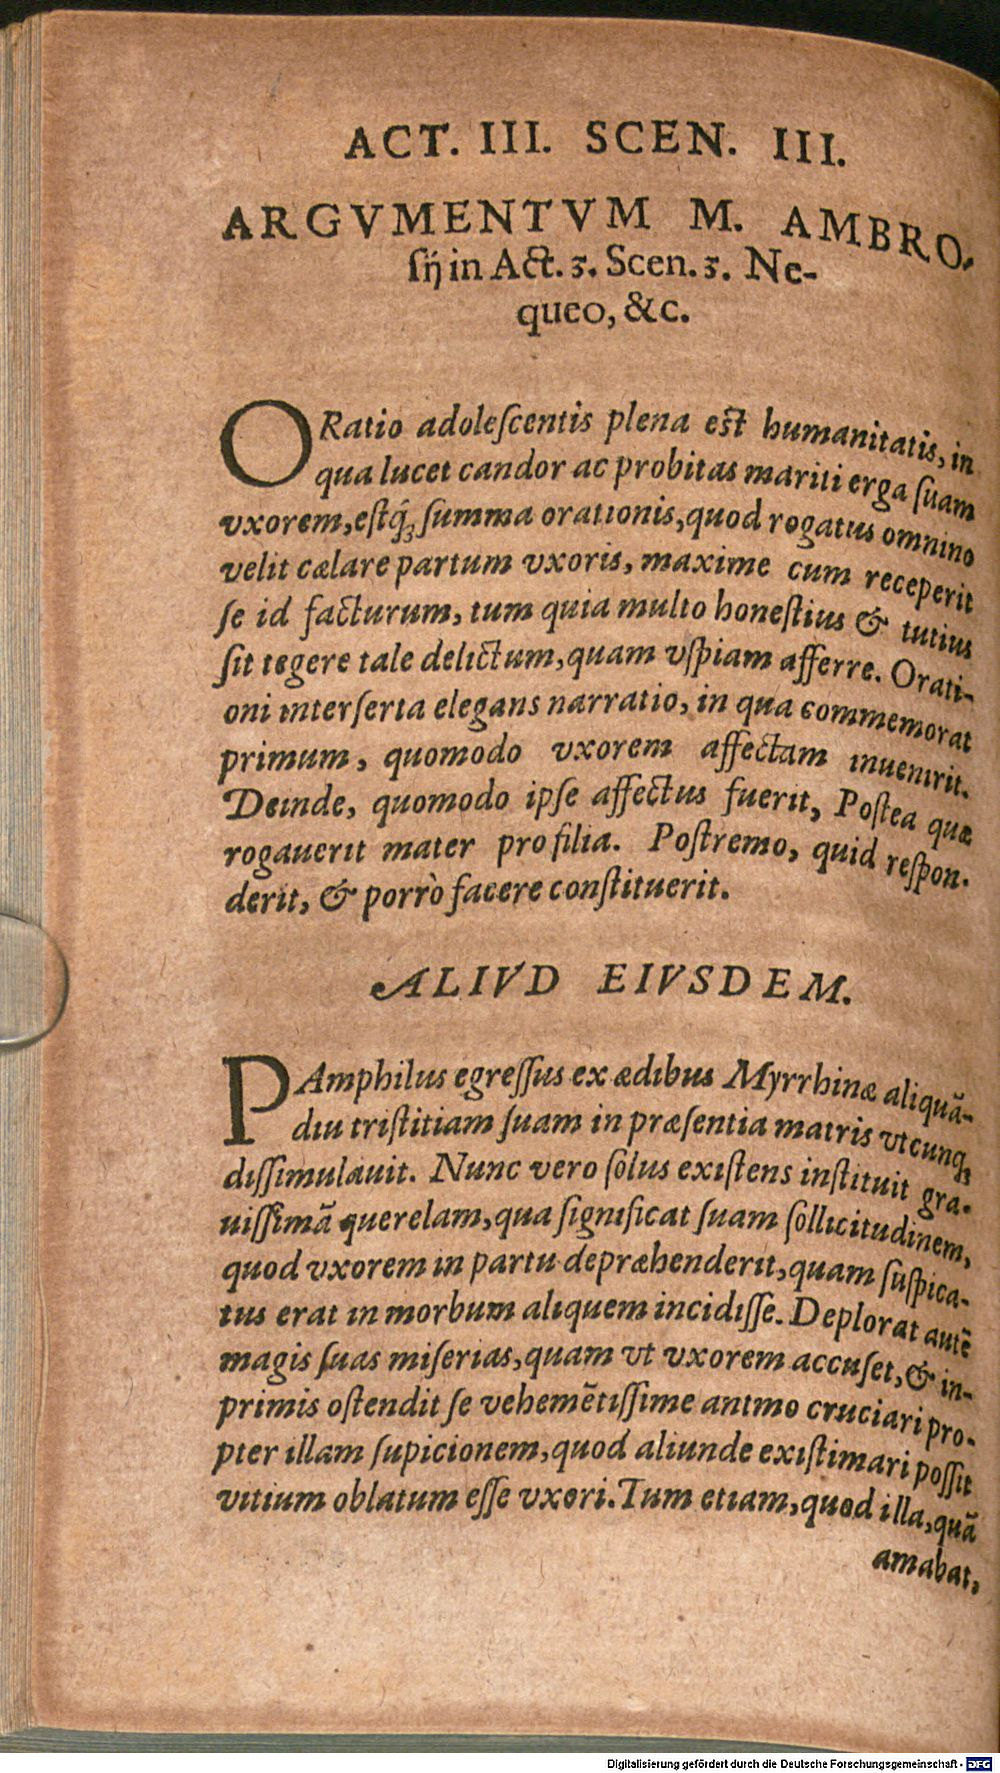 ACT. III. SCEN. III.
ARGVMENTVM M. AMBRO-
ſij in Act. 3. Scen. 3. Ne-
queo, &c.
ORatio adoleſcentis plena eſt humanitatis, in
qua lucet candor ac probitas mariti erga ſuam
vxorem, eſtq́; ſumma orationis, quod rogatus omnino
velit cælare partum vxoris, maxime cum receperit
ſe id facturum, tum quia multo honeſtius & tutius
ſit tegere tale delictum, quam vſpiam afferre. Orati-
oni interſerta elegans narratio, in qua commemorat
primum, quomodo vxorem affectam inuenirit.
Deinde, quomodo ipſe affectus fuerit, Poſtea quæ
rogauerit mater pro filia. Poſtremo, quid reſpon-
derit, & porrò facere conſtituerit.
ALIVD EIVSDEM.
PAmphilus egreſſus ex ædibus Myrrhinæ aliquã-
diu triſtitiam ſuam in præſentia matris vtcunq;
diſſimulauit. Nunc vero ſolus exiſtens inſtituit gra-
uiſſimã querelam, qua ſignificat ſuam ſollicitudinem,
quod vxorem in partu depræhenderit, quam ſuſpica-
tus erat in morbum aliquem incidiſſe. Deplorat autẽ
magis ſuas miſerias, quam vt vxorem accuſet, & in-
primis oſtendit ſe vehemẽtiſſime animo cruciari pro-
pter illam ſupicionem, quod aliunde exiſtimari poſſit
vitium oblatum eſſe vxori. Tum etiam, quod illa, quã
amabat,
Digitalisierung gefördert durch die Deutsche Forschungsgemeinschaft - DFG